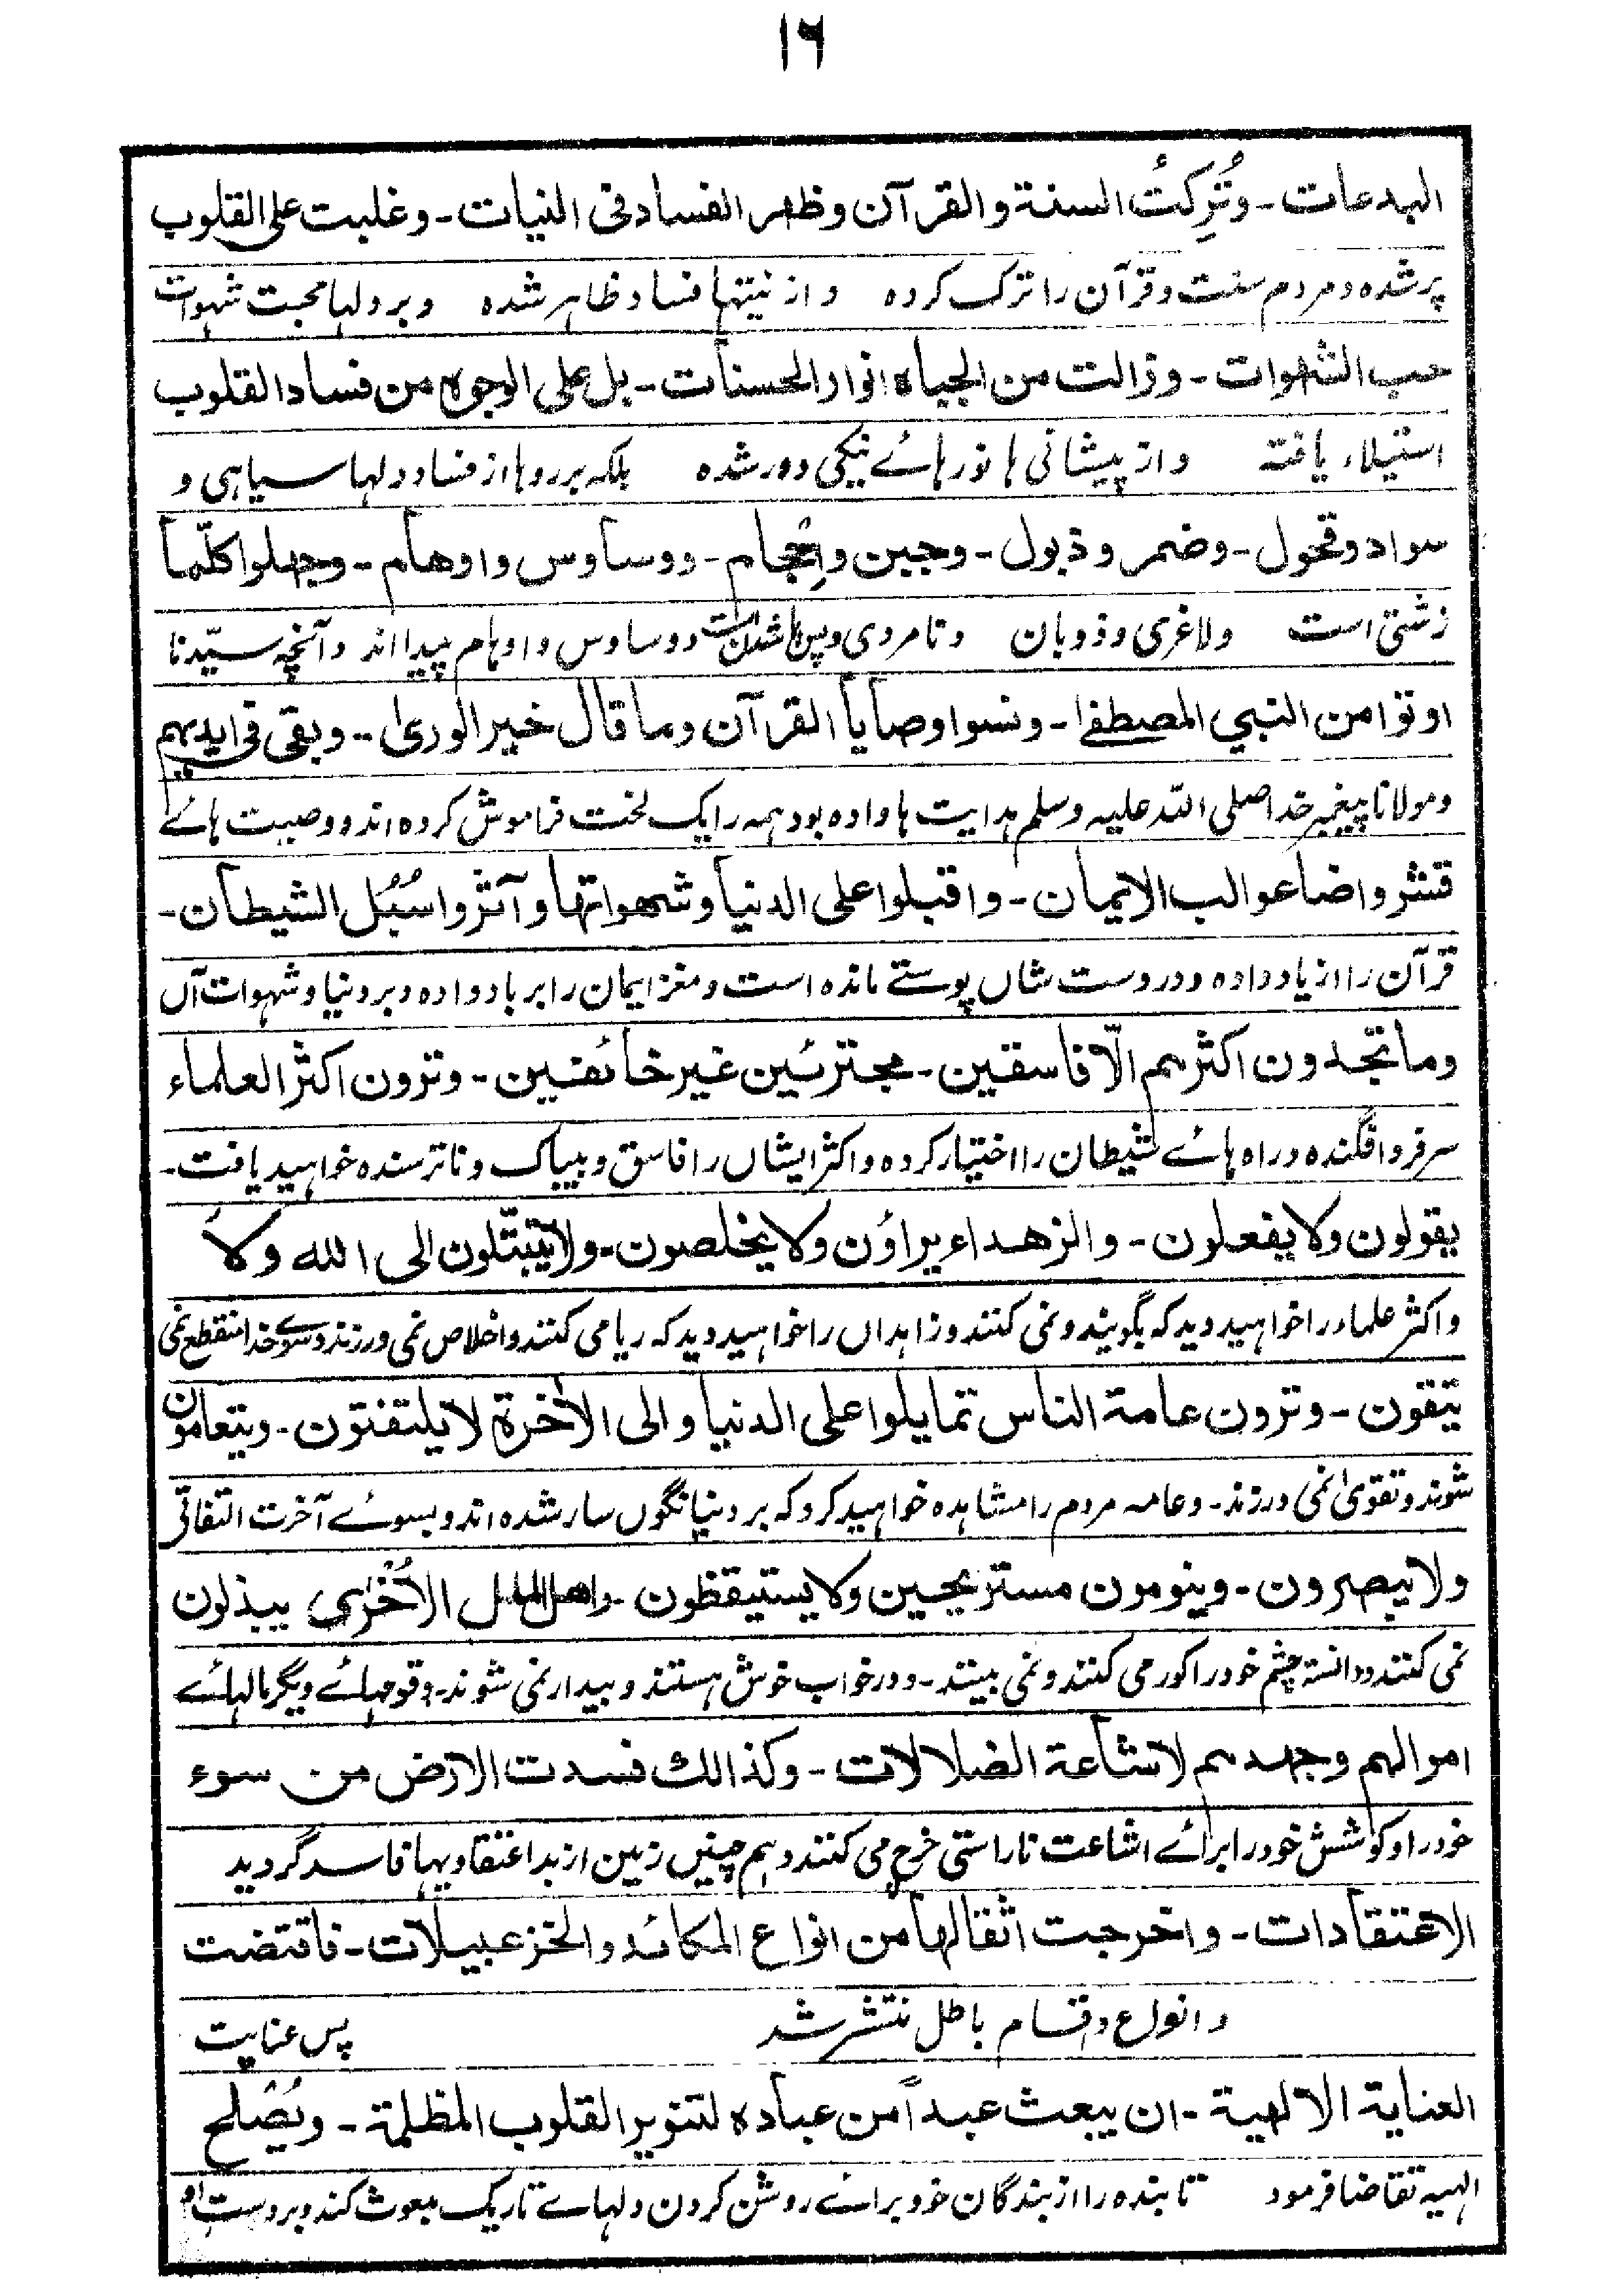 ١٦
البدعات - وتُرِكتُ السنة والقرآن وظهر الفساد فی النیات - وغلبت علی القلوب
پر شده و مردم سنت و قرآن را ترک کرده و از نیتها فساد ظاهر شده و بر دلها محبت شهوات
حب الشهوات - وزالت من الجباه انوار الحسنات - بل علی الوجوه من فساد القلوب
استیلاء یافته و از پیشانی ها نور هائے نیکی دور شده بلکه بر روها از فساد دلها سیاهی و
سواد وقحول - وضمر وذبول - وجبن واِحجام - ووساوس واوهام - وجهلوا کلّما
زشتی است ولاغری و ذوبان و نامردی و پس پا شدن است و وساوس و اوهام پیدا اند و آنچه سیّدنا
اوتوا من النبی المصطفٰی - ونسوا وصایا القرآن وما قال خیر الوریٰ - وبقی فی ایدیهم
و مولانا پیغمبر خدا صلی اللہ علیه وسلم هدایت ها داده بود همه را یک لخت فراموش کرده اند و وصیت هائے
قشر واضاعوا لب الایمان - واقبلوا علی الدنیا وشهواتها وآثروا سُبُل الشیطان -
قرآن را از یاد داده و در دست شاں پوستے مانده است و مغز ایمان را برباد داده و بر دنیا و شهوات آں
وما تجدون اکثرهم الّا فاسقین - مجترئین غیر خائفین - وترون اکثر العلماء
سر فرو افگنده و راه هائے شیطان را اختیار کرده و اکثر ایشاں را فاسق و بیباک و ناترسنده خواهید یافت -
یقولون ولا یفعلون - والزهداء یراؤن ولا یخلصون - ولا یتبتّلون الی الله ولا
و اکثر علماء را خواهید دید که بگویند و نمی کنند و زاهداں را خواهید دید که ریا می کنند و اخلاص نمی ورزند و سوئے خدا منقطع نمی
یتقون - وترون عامة الناس تمایلوا علی الدنیا والی الاٰخرة لا یلتفتون - ویتعامون
شوند و تقویٰ نمی ورزند - و عامه مردم را مشاهده خواهید کرد که بر دنیا نگوں سار شده اند و بسوئے آخرت التفاتی
ولا یبصرون - وینومون مستریحین ولا یستیقظون - واهل الملل الاُخرٰی یبذلون
نمی کنند و دانسته چشم خود را کور می کنند و نمی بینند - و در خواب خوش هستند و بیدار نمی شوند - و قومهائے دیگر مالهائے
اموالهم وجهدهم لاشاعة الضلالات - وکذالك فسدت الارض من سوء
خود را و کوشش خود را برائے اشاعت ناراستی خرچ می کنند و هم چنیں زمین از بد اعتقادیها فاسد گردید
الاعتقادات - واخرجت اثقالها من انواع المکائد والخزعبیلات - فاقتضت
و انواع و اقسام باطل منتشر شد پس عنایت
العنایة الالهیة - ان یبعث عبداً من عباده لتنویر القلوب المظلمة - ویُصلح
الهیه تقاضا فرمود تا بنده را از بندگان خود برائے روشن کردن دلهائے تاریک مبعوث کند و بر دست او